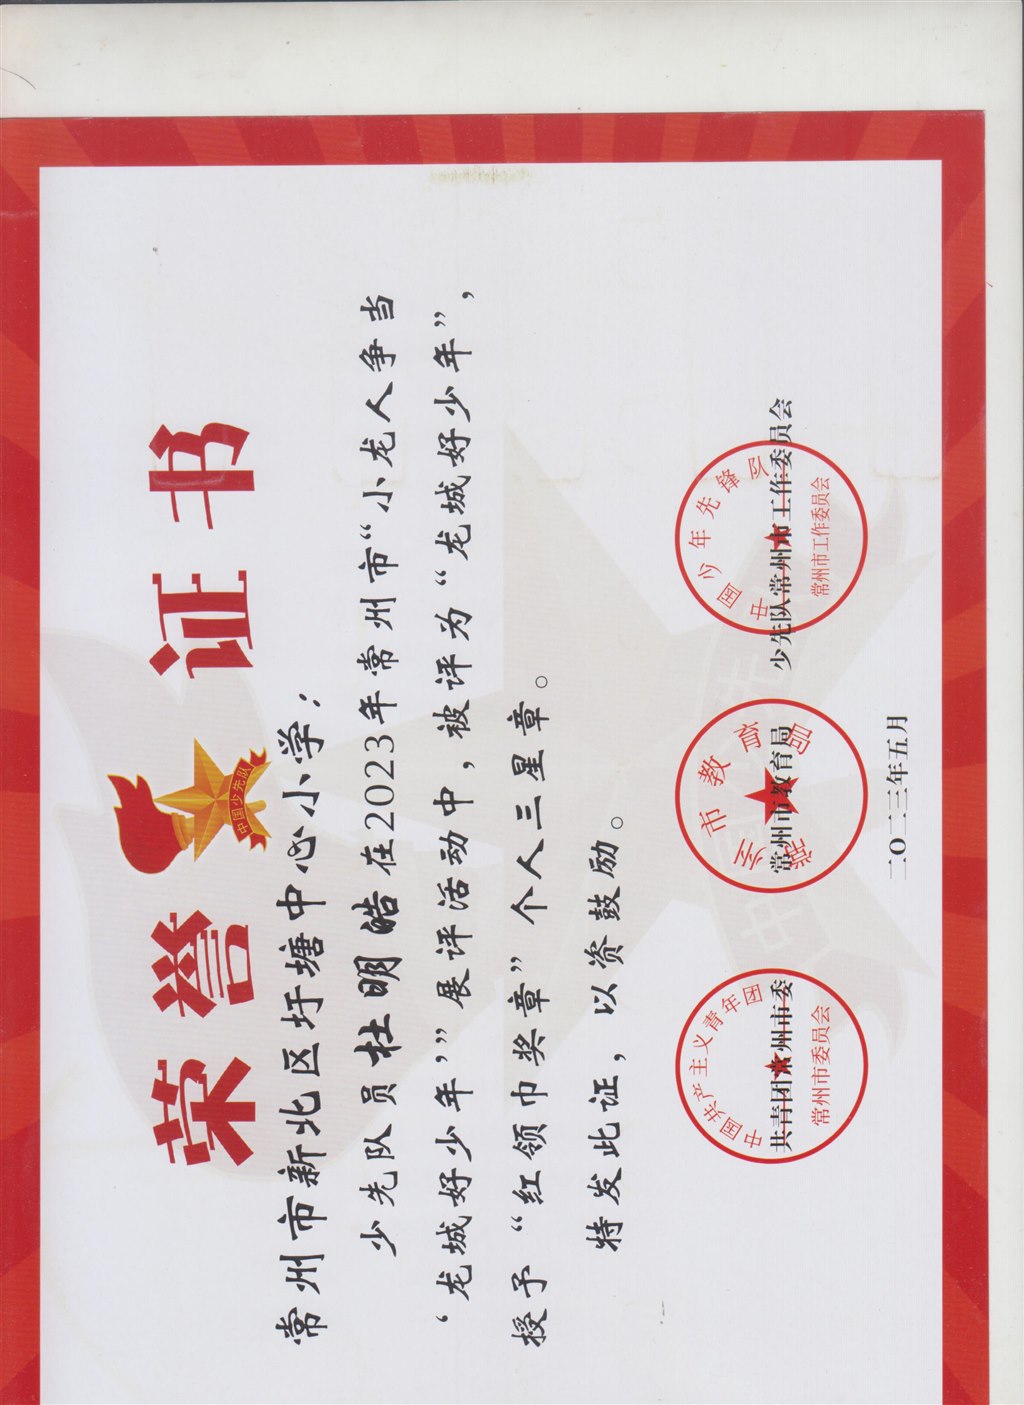 荣誉证书
中国少先队
常州市新北区圩塘中心小学：
少先队员杜明皓在2023年常州市“小龙人争当
‘龙城好少年’”展评活动中，被评为“龙城好少年”，
授予“红领巾奖章”个人三星章。
特发此证，以资鼓励。
中国共产主义青年团
常州市委员会
共青团常州市委
常州市教育局
常州市教育局
中国少年先锋队
常州市工作委员会
少先队常州市工作委员会
二〇二三年五月